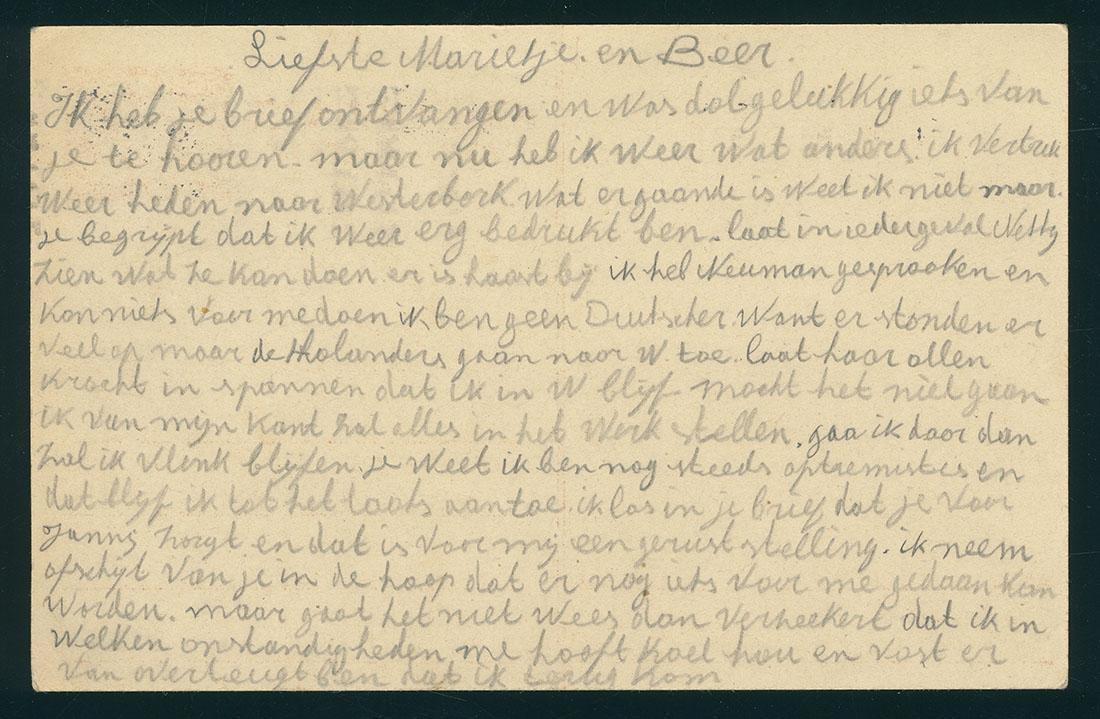 Liefste Marietje. en Beer.
Ik heb je brief ontvangen en was dolgelukkig iets van
je te hooren. maar nu heb ik weer wat anders. ik vertrek
weer heden naar Westerbork. wat ergaande is weet ik niet maar.
je begrypt dat ik weer erg bedrukt ben. laat in iedergeval Netty
zien wat ze kan doen er is haast bij ik heb Neuman gesprooken en
kon niets voor me doen ik ben geen Duitscher want er stonden er
veel op maar de Holanders gaan naar W. toe. laat haar allen
kracht in spannen dat ik in W blyf mocht het niet gaan
ik van mijn kant zal alles in het werk stellen. gaa ik door dan
zal ik vlink blyfen. je weet ik ben nog steeds optremisties en
dat blyf ik tot het laats aan toe. ik las in je brief dat je voor
Janny zorgt en dat is voor my een gerust stelling. ik neem
afschyt van je in de hoop dat er nog iets voor me gedaan kan
worden. maar gaat het niet wees dan verseekert dat ik in
welken onstandigheden me hooft koel hou en vast er
van overteugt ben dat ik terug kom